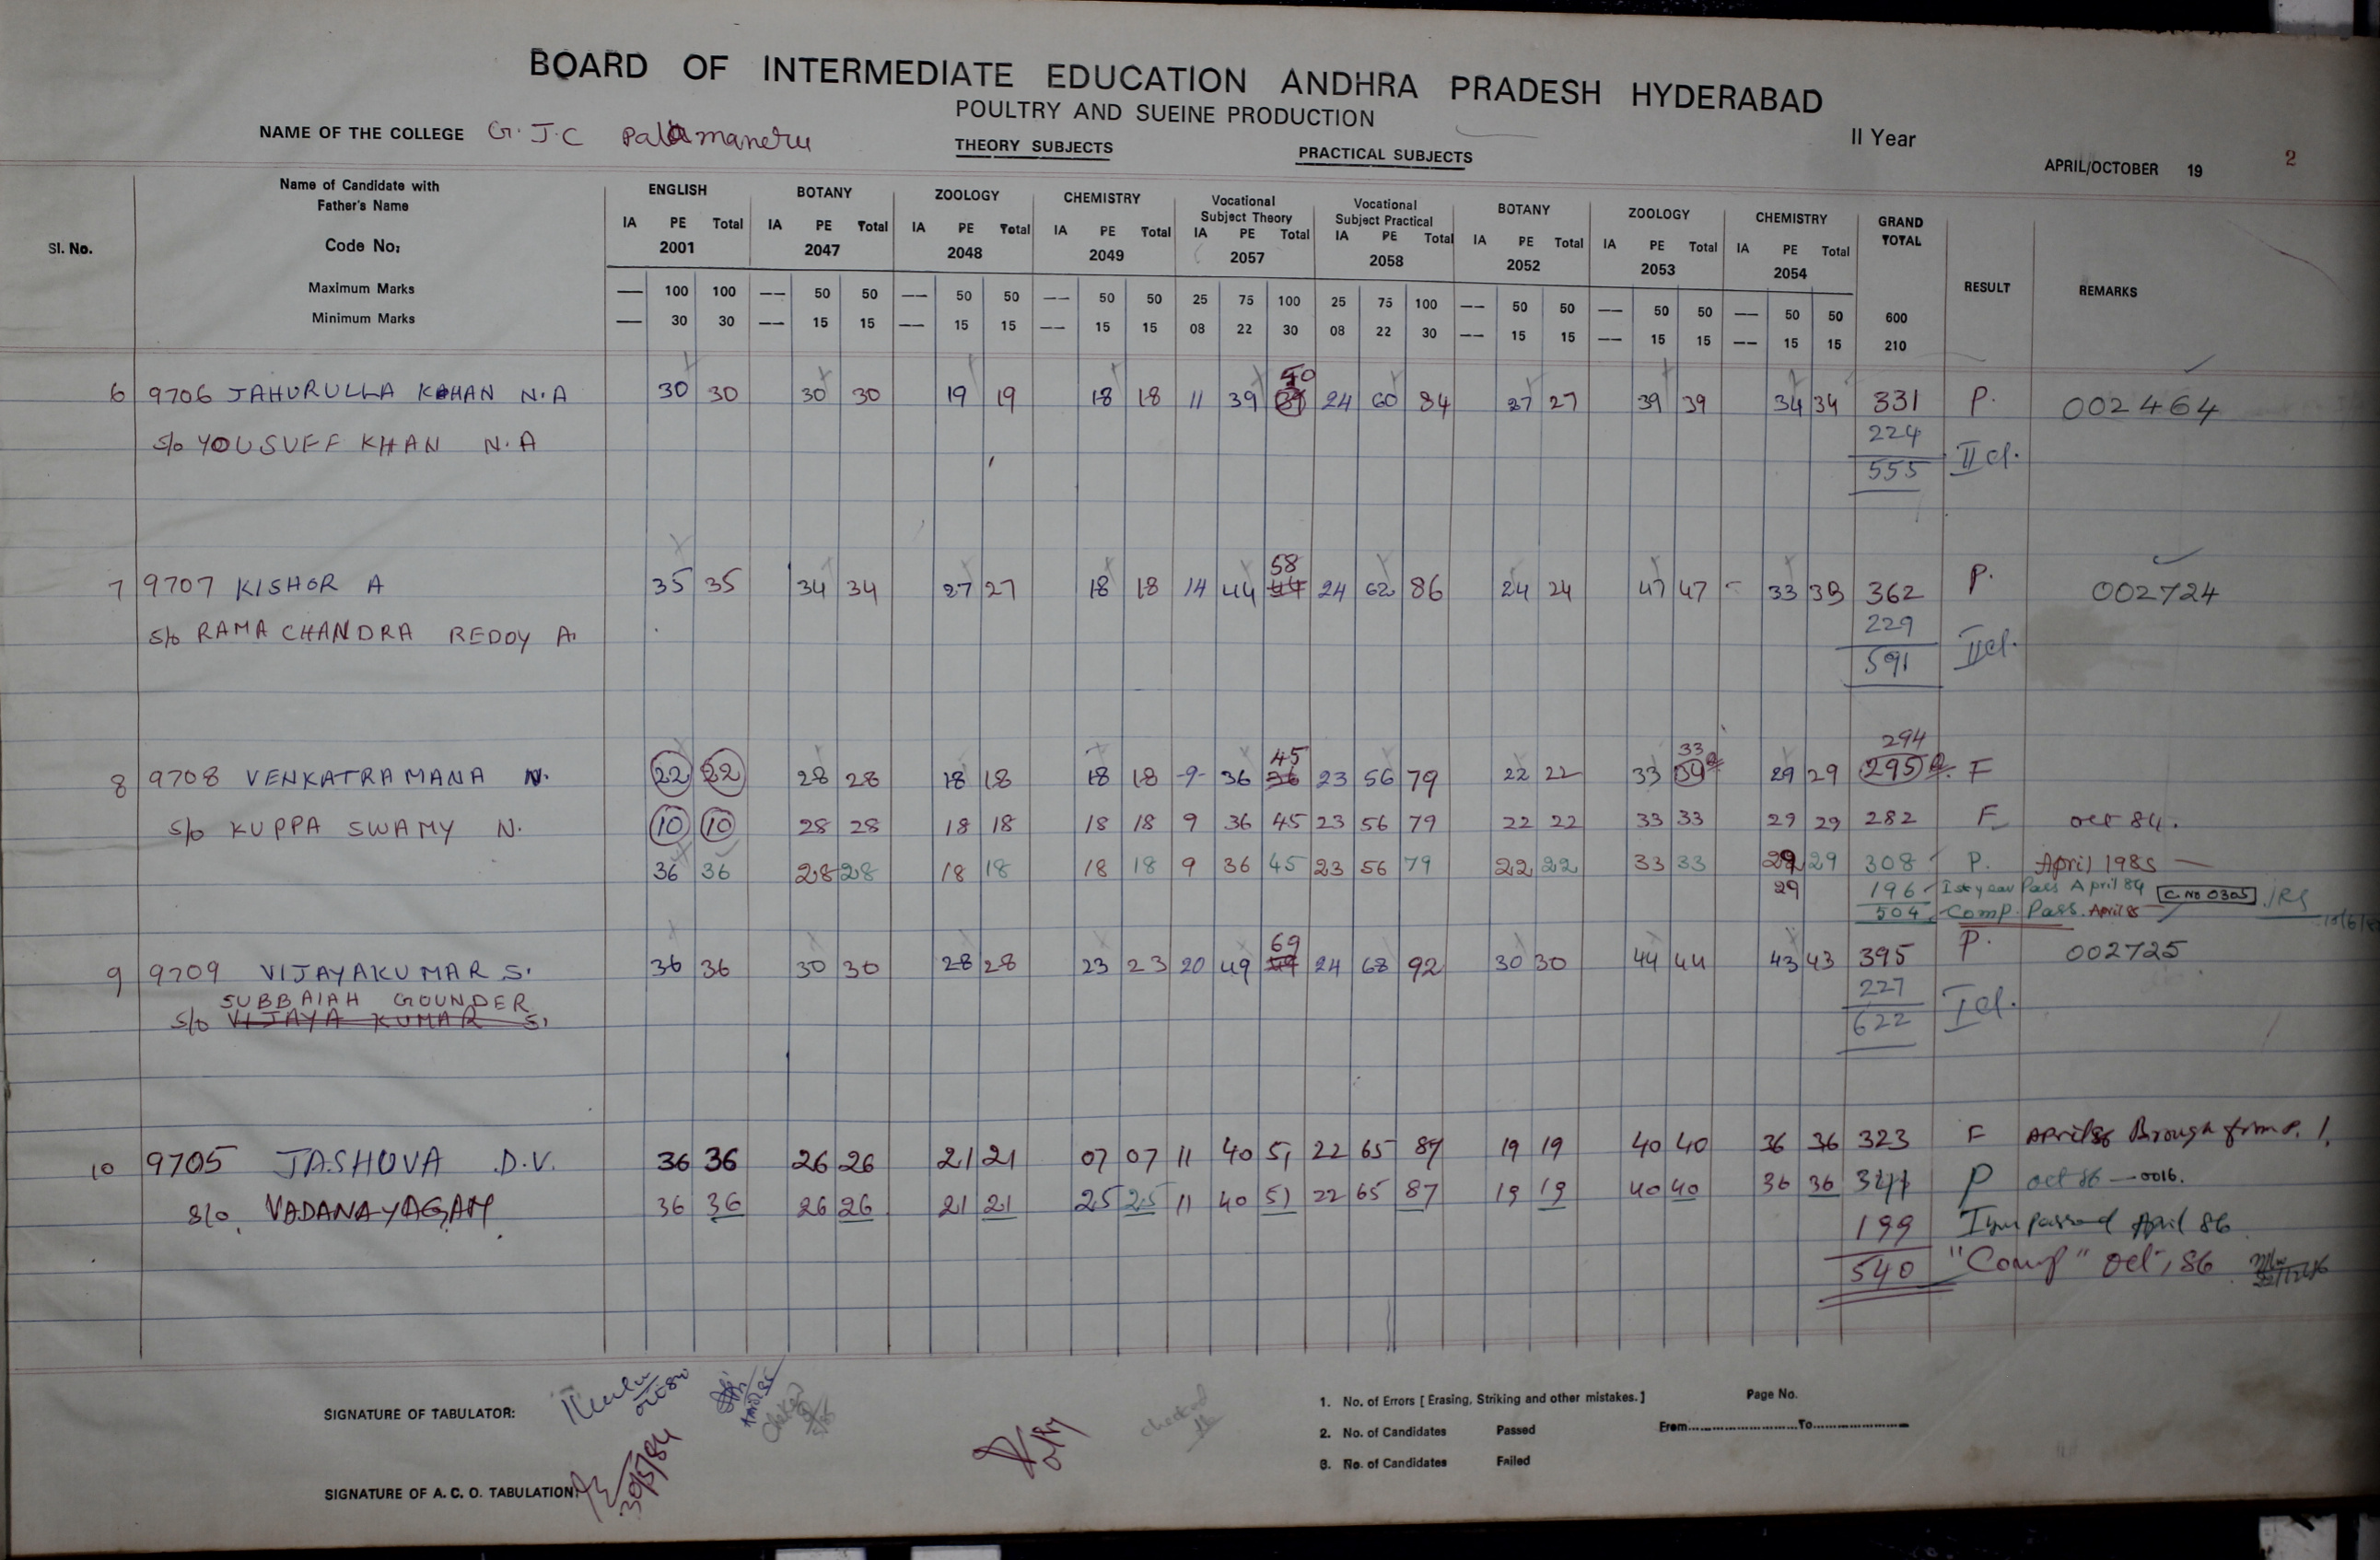 BOARD OF INTERMEDIATE EDUCATION ANDHRA PRADESH HYDERABAD
POULTRY AND SUEINE PRODUCTION
NAME OF THE COLLEGE G.J.C Palamaneru
THEORY SUBJECTS PRACTICAL SUBJECTS II Year
APRIL/OCTOBER 19 2
Sl. No. Name of Candidate with Father's Name Code No: ENGLISH BOTANY ZOOLOGY CHEMISTRY Vocational Subject Theory Vocational Subject Practical BOTANY ZOOLOGY CHEMISTRY GRAND TOTAL RESULT REMARKS
IA PE Total IA PE Total IA PE Total IA PE Total IA PE Total IA PE Total IA PE Total IA PE Total IA PE Total
2001 2047 2048 2049 2057 2058 2052 2053 2054
Maximum Marks — 100 100 — 50 50 — 50 50 — 50 50 25 75 100 25 75 100 — 50 50 — 50 50 — 50 50 600
Minimum Marks — 30 30 — 15 15 — 15 15 — 15 15 08 22 30 08 22 30 — 15 15 — 15 15 — 15 15 210
6 9706 JAHURULLA KHAN N.A 30 30 30 30 19 19 18 18 11 39 50 24 60 84 27 27 39 39 34 34 331 P. 002464
S/o YOUSUFF KHAN N.A 224
555 II cl.
7 9707 KISHOR A 35 35 34 34 27 27 18 18 14 44 58 24 62 86 24 24 47 47 33 33 362 P. 002724
S/o RAMA CHANDRA REDDY A. 229
591 II cl.
8 9708 VENKATRAMANA N. 22 22 28 28 18 18 18 18 -9- 36 45 23 56 79 22 22 33 33 29 29 294 295 F
S/o KUPPA SWAMY N. 10 10 28 28 18 18 18 18 9 36 45 23 56 79 22 22 33 33 29 29 282 F oct 84.
36 36 28 28 18 18 18 18 9 36 45 23 56 79 22 22 33 33 29 29 308 P. April 1985
29 196 Ist year Pass April 84 C.No 0305
504 Comp. Pass. April 85
9 9709 VIJAYAKUMAR S. 36 36 30 30 28 28 23 23 20 49 69 24 68 92 30 30 44 44 43 43 395 P. 002725
SUBBAIAH GOUNDER 227
S/o VIJAYA KUMAR S. 622 I cl.
10 9705 JASHUVA D.V. 36 36 26 26 21 21 07 07 11 40 51 22 65 87 19 19 40 40 36 36 323 F April 86 Brough from P. 1.
S/o. VADANAYAGAM 36 36 26 26 21 21 25 25 11 40 51 22 65 87 19 19 40 40 36 36 341 P oct 86 — 0016.
199 I year passed April 86
540 "Comp" Oct, 86
SIGNATURE OF TABULATOR:
checked
SIGNATURE OF A. C. O. TABULATION: 30/5/84
1. No. of Errors [ Erasing, Striking and other mistakes. ] Page No.
2. No. of Candidates Passed From To
3. No. of Candidates Failed